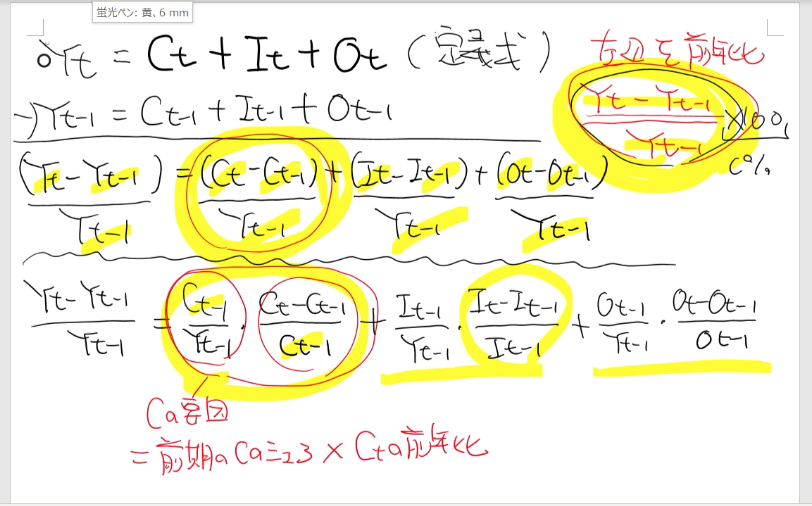 蛍光ペン: 黄、6 mm
Yt = Ct + It + Ot (定義式)
左辺を前年比
-) Yt-1 = Ct-1 + It-1 + Ot-1
(Yt - Yt-1) / Yt-1 × 100, (%)
(Yt - Yt-1) / Yt-1 = (Ct - Ct-1) / Yt-1 + (It - It-1) / Yt-1 + (Ot - Ot-1) / Yt-1
(Yt - Yt-1) / Yt-1 = Ct-1 / Yt-1 · (Ct - Ct-1) / Ct-1 + It-1 / Yt-1 · (It - It-1) / It-1 + Ot-1 / Yt-1 · (Ot - Ot-1) / Ot-1
Cの
= 前期のCの × Ctの前年比